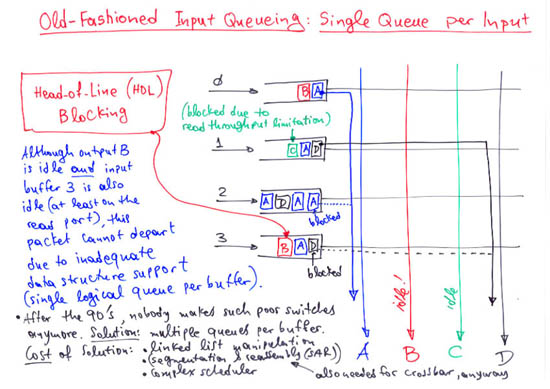 Old-Fashioned Input Queueing: Single Queue per Input
Head-of-Line (HOL)
Blocking
0
B A
(blocked due to
read throughput limitation)
1
C A D
Although output B
is idle and input
buffer 3 is also
idle (at least on the
read port), this
packet cannot depart
due to inadequate
data structure support
(single logical queue per buffer).
2
A D A A
blocked
3
B A D
blocked
idle!
idle
A B C D
• After the 90's, nobody makes such poor switches
anymore. Solution: multiple queues per buffer.
Cost of Solution: • linked list manipulation
• segmentation & reassembly (SAR)
• complex scheduler
also needed for crossbar, anyway